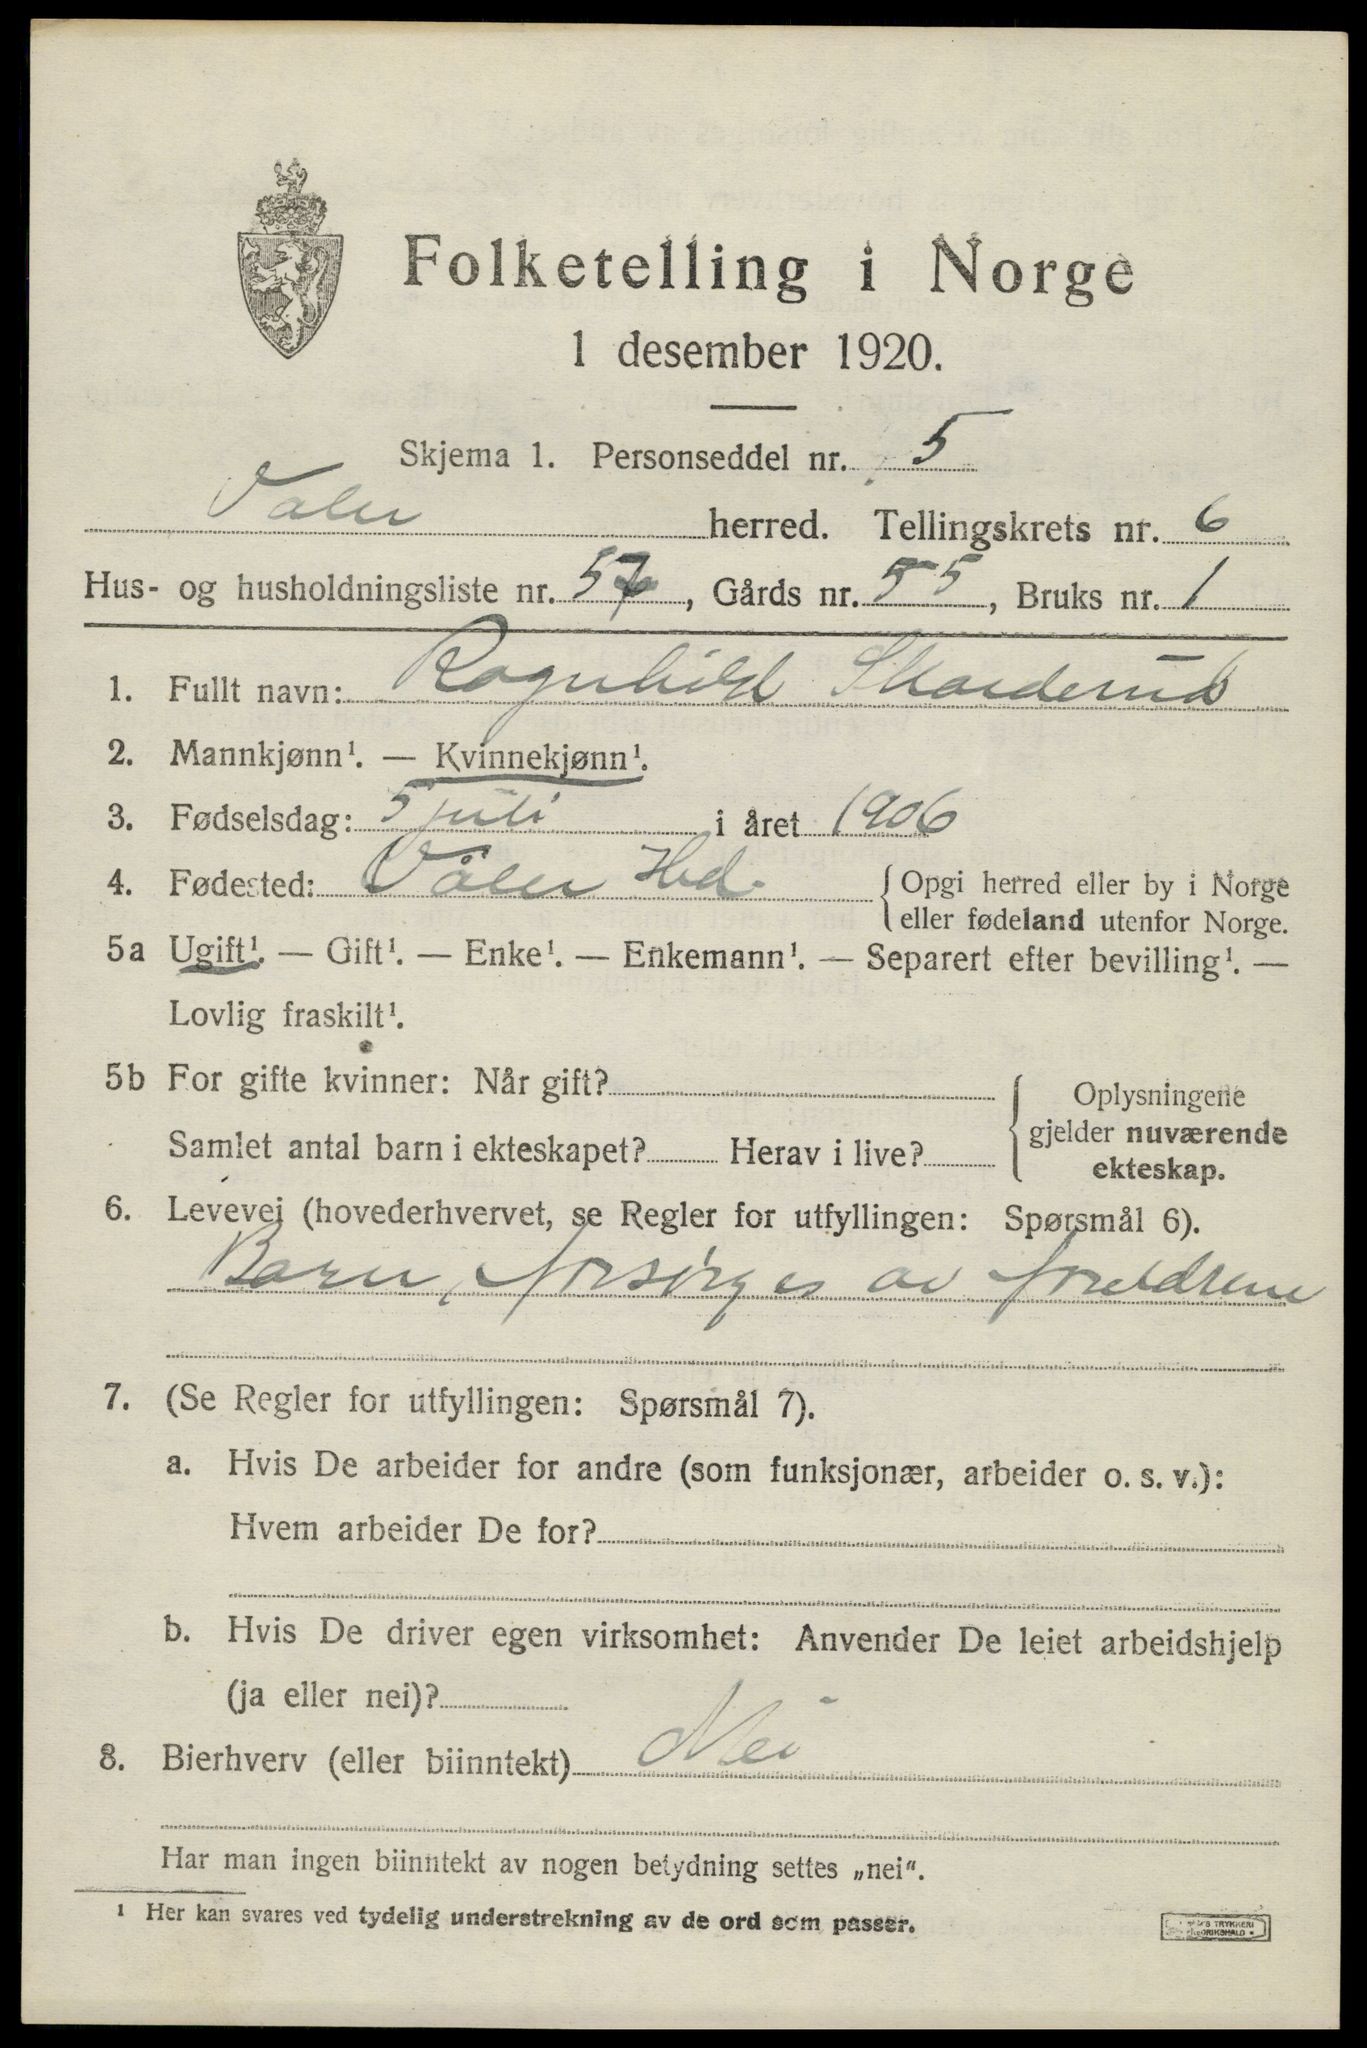 Folketelling i Norge
1 desember 1920.
Skjema 1. Personseddel nr. 5
Våler herred. Tellingskrets nr. 6
Hus- og husholdningsliste nr. 57, Gårds nr. 55, Bruks nr. 1
1. Fullt navn: Ragnhild Skarderud
2. Mannkjønn¹. — Kvinnekjønn¹.
3. Fødselsdag: 5 juli i året 1906
4. Fødested: Våler Hed. { Opgi herred eller by i Norge
eller fødeland utenfor Norge.
5a Ugift¹. — Gift¹. — Enke¹. — Enkemann¹. — Separert efter bevilling¹. —
Lovlig fraskilt¹.
5b For gifte kvinner: Når gift? { Oplysningene
Samlet antal barn i ekteskapet? Herav i live? gjelder nuværende
ekteskap.
6. Levevei (hovederhvervet, se Regler for utfyllingen: Spørsmål 6).
Barn, forsørges av foreldrene
7. (Se Regler for utfyllingen: Spørsmål 7).
a. Hvis De arbeider for andre (som funksjonær, arbeider o. s. v.):
Hvem arbeider De for?
b. Hvis De driver egen virksomhet: Anvender De leiet arbeidshjelp
(ja eller nei)?
8. Bierhverv (eller biinntekt) Nei
Har man ingen biinntekt av nogen betydning settes „nei".
¹ Her kan svares ved tydelig understrekning av de ord som passer.
TRYKKERI